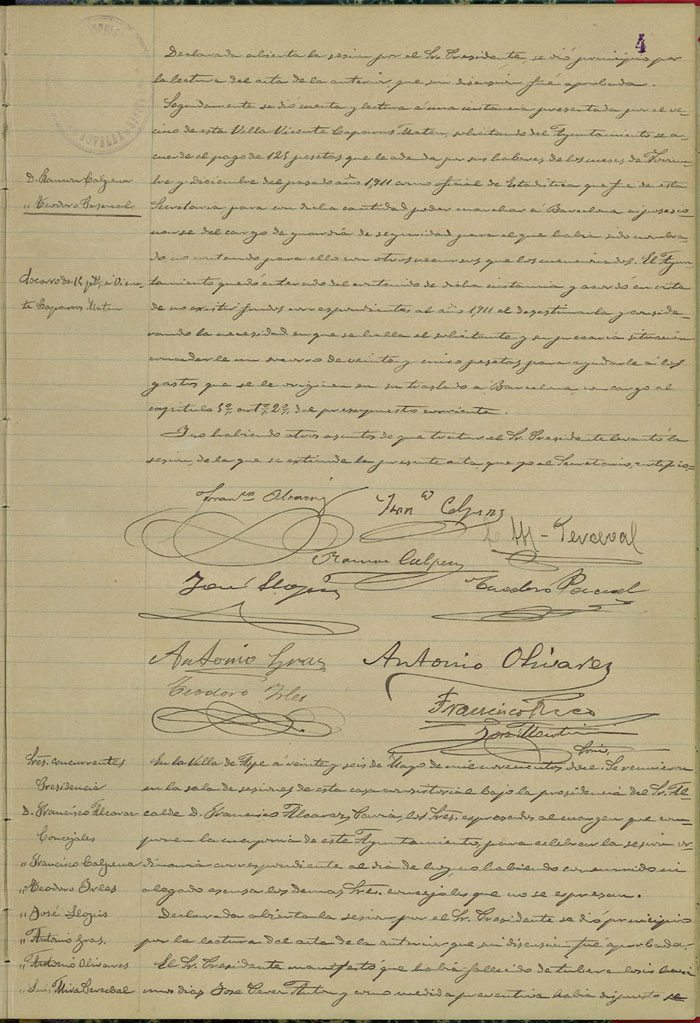 4
Declarada abierta la sesión por el Sr. Presidente, se dió principio por
la lectura del acta de la anterior, que sin discusión fué aprobada.
Seguidamente se dió cuenta y lectura a una instancia presentada por el ve-
cino de esta Villa Vicente Caparros Mater, solicitando del Ayuntamiento se a-
cuerde el pago de 125 pesetas que le adeuda por sus haberes de los meses de Noviem-
D. Ramon Calpena
bre y diciembre del pasado año 1,911 como oficial de Estadistica que fué de esta
" Teodoro Pascual
Secretaria para con dicha cantidad poder marchar a Barcelona a posesio-
narse del cargo de guardia de seguridad para el que habia sido nombra-
do no contando para ello con otros recursos que los enunciados. El Ayun-
Socorro de 25 ptas a Vicen-
te Caparros Mater
tamiento quedó enterado del contenido de dicha instancia y acordó en vista
de no existir fondos correspondientes al año 1,911 el desestimarla y conside-
rando la necesidad en que se halla el solicitante y su precaria situación
concederle un socorro de veinte y cinco pesetas para ayudarle a los
gastos que se le originen en su traslado a Barcelona con cargo al
capitulo 5º, artº 2º, del presupuesto corriente.
Y no habiendo otros asuntos de que tratar el Sr. Presidente levantó la
sesión, de la que se extiende la presente acta que yo el Secretario, certifico.
Franco Alcaraz
Franco Calpena
M-Perceval
Ramon Calpena
José Llopis
Teodoro Pascual
Antonio Gras
Antonio Olivares
Teodoro Irles
Francisco Rico
José Martin
Srio.
Sres. concurrentes
En la Villa de Aspe a veinte y seis de Mayo de mil novecientos doce. Se reunieron
Presidencia
en la sala de sesiones de esta casa consistorial bajo la presidencia del Sr. Al-
D. Francisco Alcaraz
calde D. Francisco Alcaraz, los Sres. expresados al margen que com-
Concejales
ponen la mayoria de este Ayuntamiento, para celebrar la sesión or-
" Francisco Calpena
dinaria correspondiente al dia de hoy no habiendo concurrido ni
" Teodoro Irles
alegado escusa los demas Sres. concejales que no se expresan.
" José Llopis
Declarada abierta la sesion por el Sr. Presidente se dió principio
" Antonio Gras.
por la lectura del acta de la anterior que sin discusion fué aprobada.
" Antonio Olivares
El Sr. Presidente manifestó que habia fallecido de tuberculosis hacia
" Mira Perceval
unos dias José Cerer Anton y como medida preventiva habia dispuesto